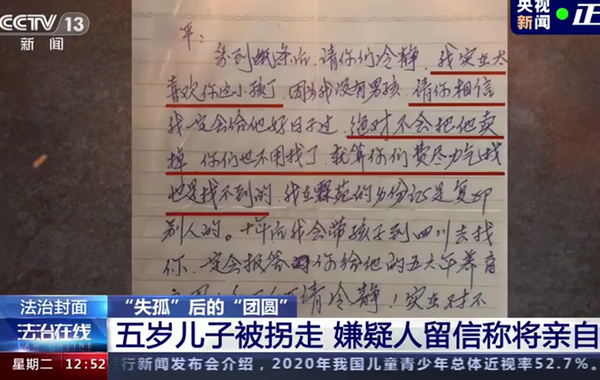 CCTV 13
新闻
央视
新闻
正
平:
来到纸条后,请你们冷静,我实在太
喜欢你这小孩了,因为我没有男孩,请你相信
我一定会给他好日子过,绝对不会把他卖
掉,你们也不用找了,就算你们费尽力气找
也是找不到的,我在霖苑的身份证是复印
别人的。十年后我会带孩子到四川去找
你,一定会报答你给他的五六年养育
请冷静!实在对不
法治封面
“失孤”后的“团圆”
法治在线
五岁儿子被拐走 嫌疑人留信称将亲自
星期二 12:52
行新闻发布会介绍,2020年我国儿童青少年总体近视率52.7%。